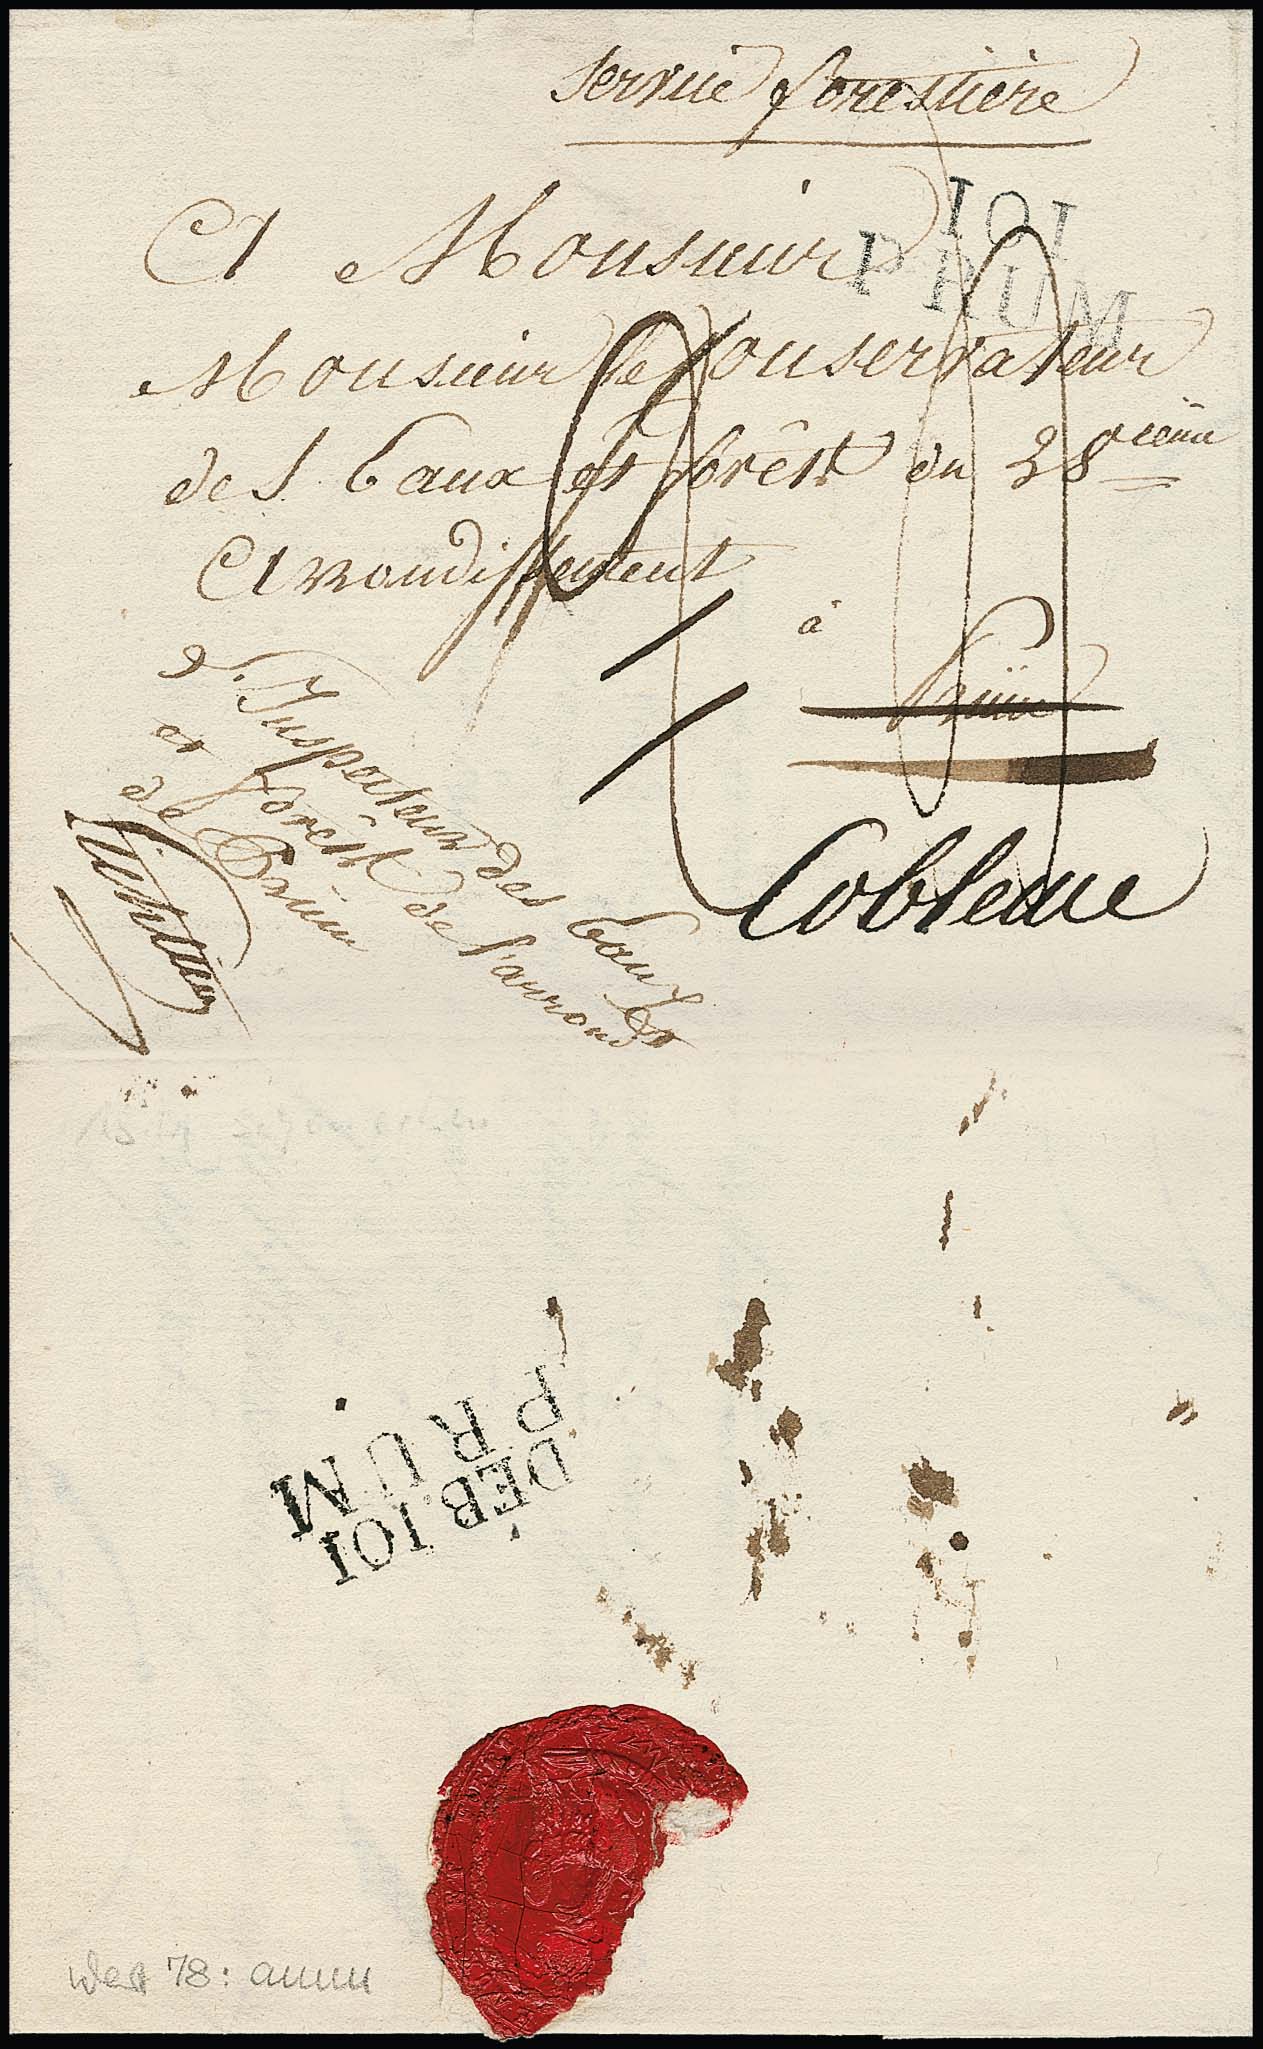 service forestière
101
PRUM
A Monsieur
Monsieur le Conservateur
des Eaux et forêst du 28ieme
Arrondissement
à
Prüm
Coblence
L'Inspecteur des Eaux et
et forêst de l'arrond
de Prüm
PRUM
DEB.101
78: